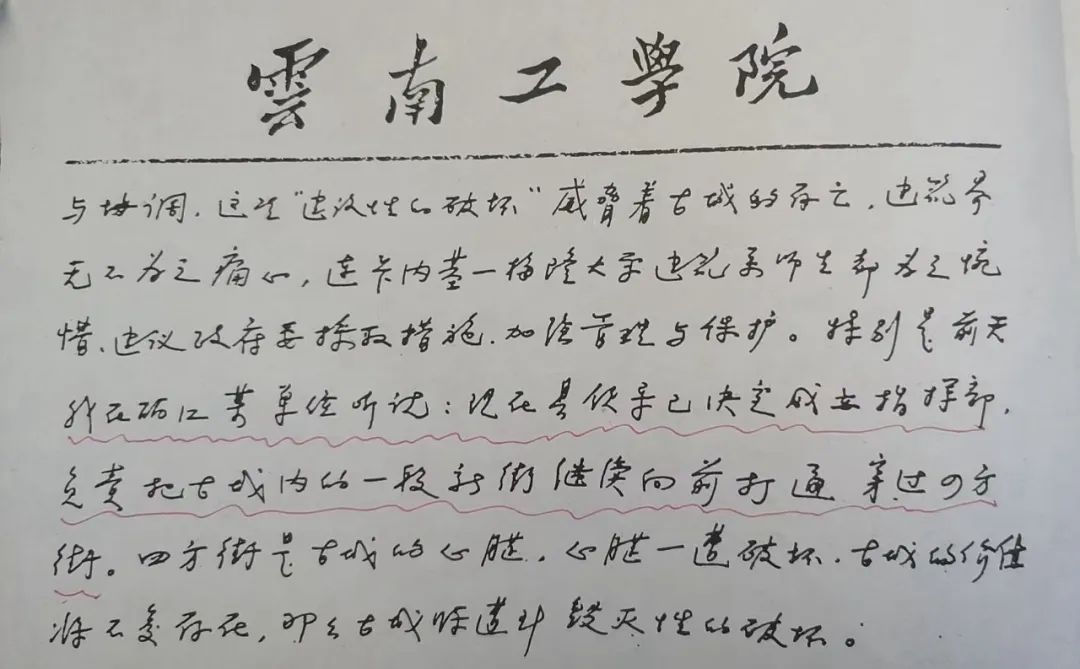 雲南工學院
与协调。这项"建设性的破坏"威脅着古城的存亡，建筑界
无不为之痛心，连卡内基一梅隆大学建筑系师生都为之惋
惜、建议政府要採取措施、加强管理与保护。特别是前天
我在丽江某单位听说：现在县领导已决定成立指挥部，
负责把古城内的一段新街继续向前打通 穿过四方
街。四方街是古城的心脏，心脏一遭破坏、古城的价值
将不复存在，那么古城将遭到毁灭性的破坏。